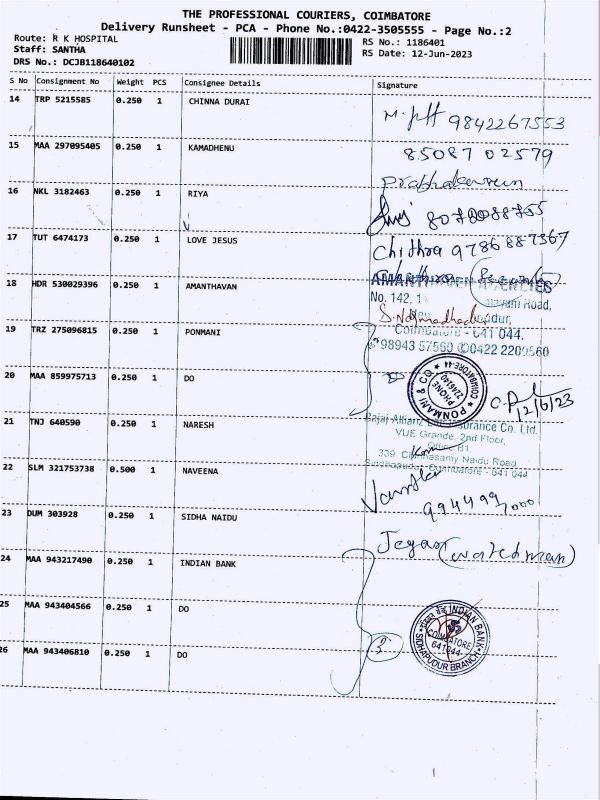 THE PROFESSIONAL COURIERS, COIMBATORE
Delivery Runsheet - PCA - Phone No.:0422-3505555 - Page No.:2
Route: R K HOSPITAL
RS No.: 1186401
Staff: SANTHA
RS Date: 12-Jun-2023
DRS No.: DCJB118640102
S No Consignment No Weight PCS Consignee Details Signature
14 TRP 5215585 0.250 1 CHINNA DURAI
9842267553
15 MAA 297095405 0.250 1 KAMADHENU
85087 02579
16 NKL 3182463 0.250 1 RIYA
Prabhakaran
17 TUT 6474173 0.250 1 LOVE JESUS
Chithra 9786887367
18 HDR 530029396 0.250 1 AMANTHAVAN
AMANTHAVEN AGENCIES
No. 142,
Road,
Coimbatore - 641 044.
19 TRZ 275096815 0.250 1 PONMANI
98943 57560 0422 2200560
20 MAA 859975713 0.250 1 DO
PONMANI & CO
COIMBATORE-44
PHONE
2246140
12/6/23
21 TNJ 640590 0.250 1 NARESH
Bajaj Allianz Life Insurance Co. Ltd.
VUE Grande, 2nd Floor,
339, Chinnasamy Naidu Road
Sidhapudur, Coimbatore - 641 044
22 SLM 321753738 0.500 1 NAVEENA
994499 7000
23 DUM 303928 0.250 1 SIDHA NAIDU
Jegan (watchman)
24 MAA 943217490 0.250 1 INDIAN BANK
25 MAA 943404566 0.250 1 DO
INDIAN BANK
COIMBATORE
641044
SIDHAPUDUR BRANCH
26 MAA 943406810 0.250 1 DO
3